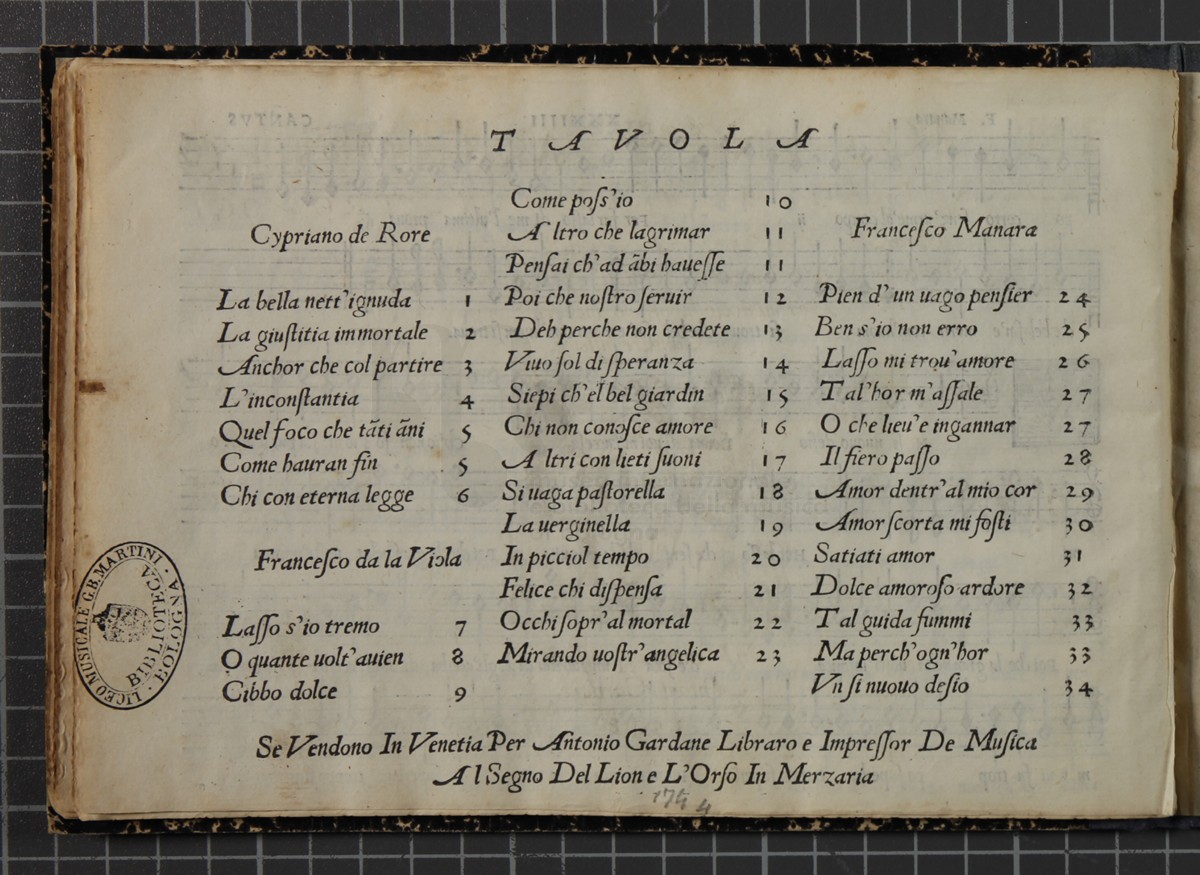 TAVOLA
Cypriano de Rore
La bella nett'ignuda 1
La giuſtitia immortale 2
Anchor che col partire 3
L'inconſtantia 4
Quel foco che tāti āni 5
Come hauran fin 5
Chi con eterna legge 6
Franceſco da la Viola
Laſſo s'io tremo 7
O quante uolt'auien 8
Cibbo dolce 9
Come poſs'io 10
Altro che lagrimar 11
Penſai ch'ad ābi haueſſe 11
Poi che noſtro ſeruir 12
Deh perche non credete 13
Viuo ſol di ſperanza 14
Siepi ch'el bel giardin 15
Chi non conoſce amore 16
Altri con lieti ſuoni 17
Si uaga paſtorella 18
La uerginella 19
In picciol tempo 20
Felice chi diſpenſa 21
Occhi ſopr'al mortal 22
Mirando uoſtr'angelica 23
Franceſco Manara
Pien d'un uago penſier 24
Ben s'io non erro 25
Laſſo mi trou'amore 26
Tal'hor m'aſſale 27
O che lieu'e ingannar 27
Il fiero paſſo 28
Amor dentr'al mio cor 29
Amor ſcorta mi foſti 30
Satiati amor 31
Dolce amoroſo ardore 32
Tal guida fummi 33
Ma perch'ogn'hor 33
Vn ſi nuouo deſio 34
Se Vendono In Venetia Per Antonio Gardane Libraro e Impreſſor De Muſica
Al Segno Del Lion e L'Orſo In Merzaria
LICEO MUSICALE G.B. MARTINI · BOLOGNA ·
BIBLIOTECA